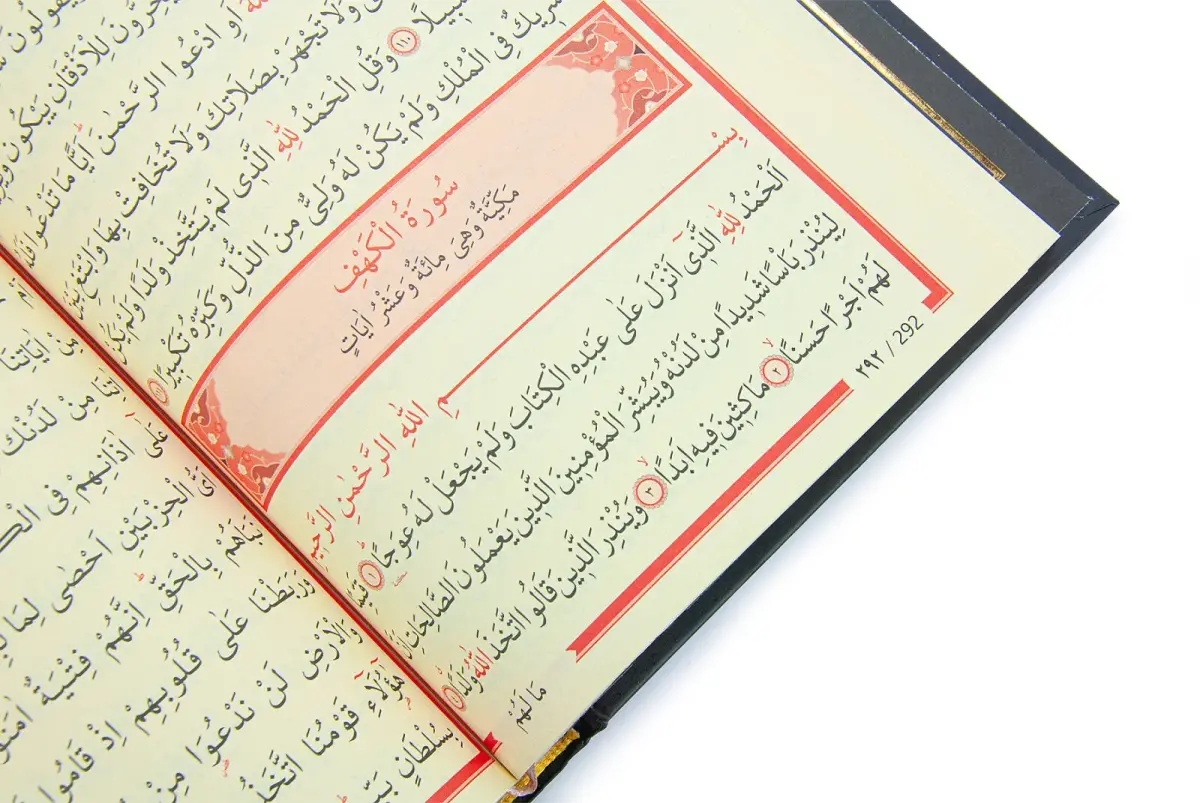 وَيَقُولُونَ
يَخِرُّونَ لِلْاَذْقَانِ يَبْكُونَ
اللّٰهَ اَوِ ادْعُوا الرَّحْمٰنَ اَيًّا مَا تَدْعُوا فَلَهُ
وَلَا تَجْهَرْ بِصَلَاتِكَ وَلَا تُخَافِتْ بِهَا وَابْتَغِ بَيْنَ
سَبِيلًا ١١٠ وَقُلِ الْحَمْدُ لِلّٰهِ الَّذٖى لَمْ يَتَّخِذْ وَلَدًا وَلَمْ يَكُنْ
شَرِيكٌ فِى الْمُلْكِ وَلَمْ يَكُنْ لَهُ وَلِىٌّ مِنَ الذُّلِّ وَكَبِّرْهُ تَكْبِيرًا ١١١
سُورَةُ الْكَهْفِ
مَكِّيَّةٌ وَهِىَ مِائَةٌ وَعَشْرُ اٰيَاتٍ
بِسْمِ اللّٰهِ الرَّحْمٰنِ الرَّحٖيمِ
اَلْحَمْدُ لِلّٰهِ الَّذٖٓى اَنْزَلَ عَلٰى عَبْدِهِ الْكِتَابَ وَلَمْ يَجْعَلْ لَهُ عِوَجًا ١ قَيِّمًا
لِيُنْذِرَ بَاْسًا شَدٖيدًا مِنْ لَدُنْهُ وَيُبَشِّرَ الْمُؤْمِنٖينَ الَّذٖينَ يَعْمَلُونَ الصَّالِحَاتِ اَنَّ
لَهُمْ اَجْرًا حَسَنًا ٢ مَاكِثٖينَ فٖيهِ اَبَدًا ٣ وَيُنْذِرَ الَّذٖينَ قَالُوا اتَّخَذَ اللّٰهُ وَلَدًا ٤
مَا لَهُمْ
٢٩٢ / 292
اٰيَاتِنَا
اٰتِنَا مِنْ لَدُنْكَ
عَلٰٓى اٰذَانِهِمْ فِى الْكَ
اَىُّ الْحِزْبَيْنِ اَحْصٰى لِمَا
نَبَاَهُمْ بِالْحَقِّ اِنَّهُمْ فِتْيَةٌ اٰمَنُوا
وَرَبَطْنَا عَلٰى قُلُوبِهِمْ اِذْ قَامُوا
وَالْاَرْضِ لَنْ نَدْعُوَا مِنْ
هٰٓؤُلَٓاءِ قَوْمُنَا اتَّخَذُ
بِسُلْطَانٍ بَيِّ